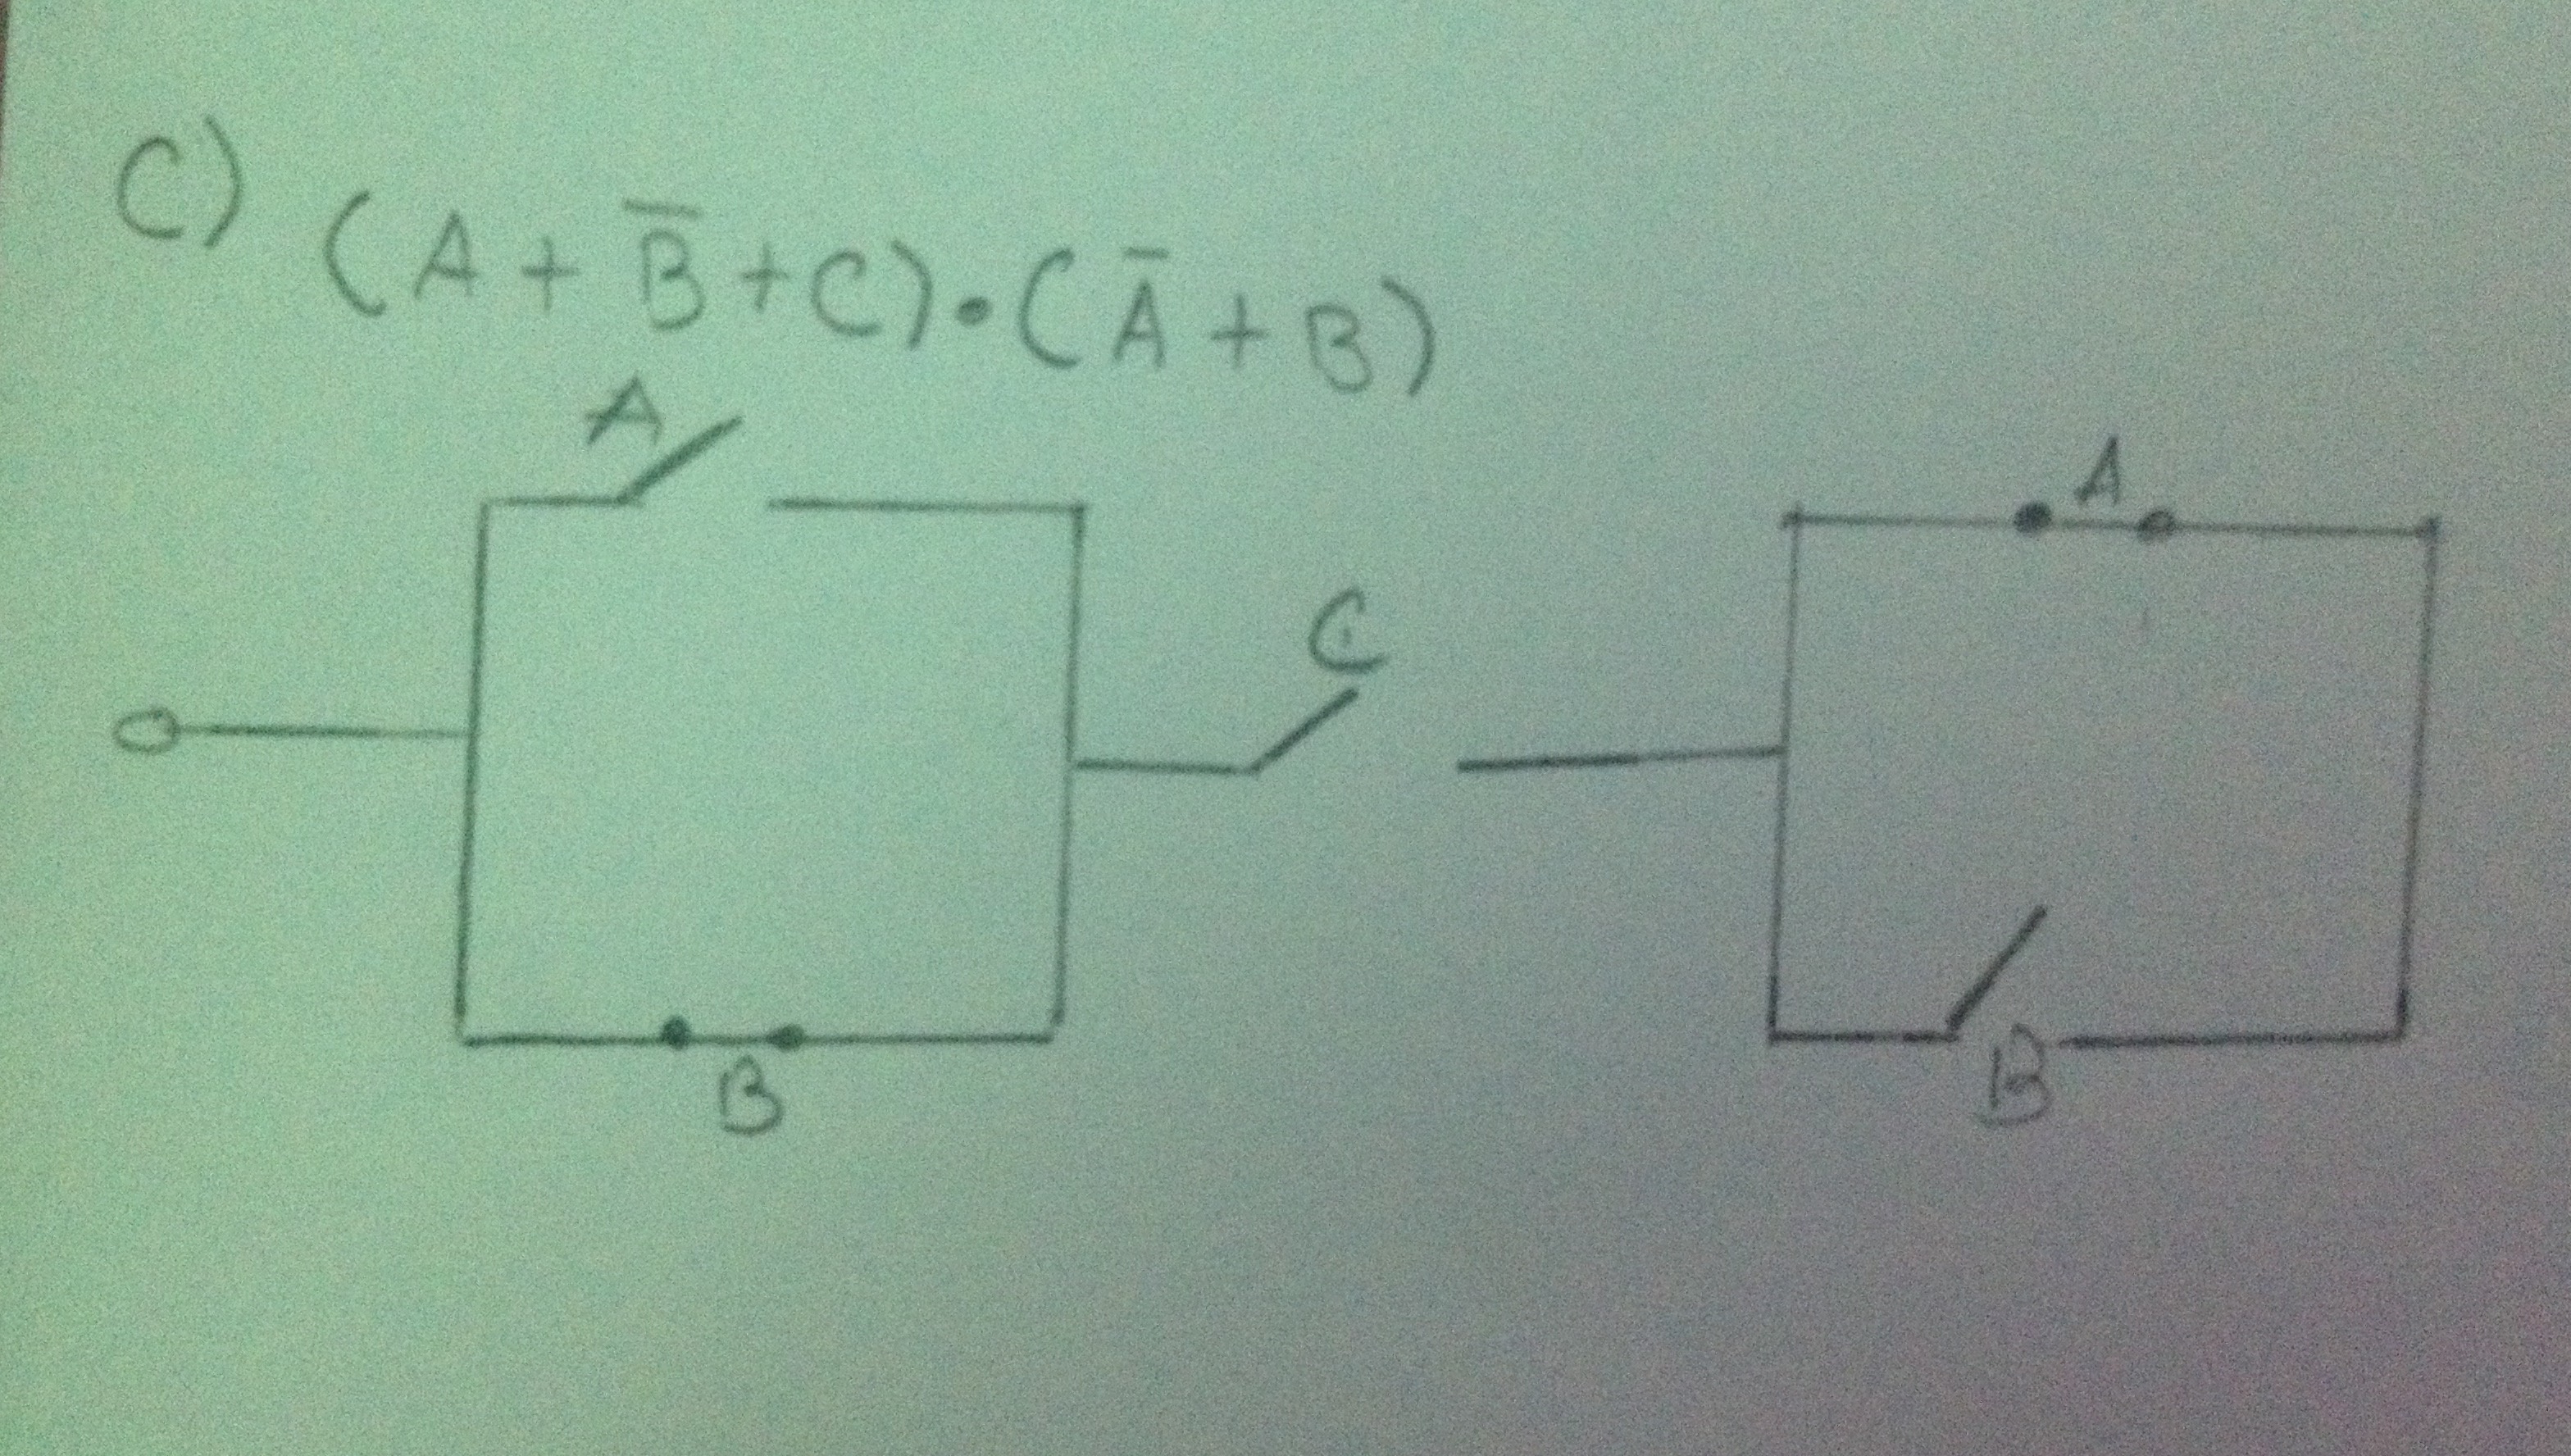 C) (A + B̅ + C) • (A̅ + B)
A
A
C
B
B